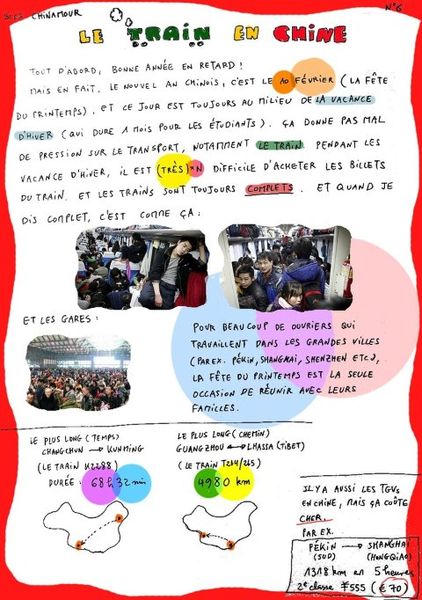 2013 CHINAMOUR
N°6
LE TRAIN EN CHINE
TOUT D'ABORD, BONNE ANNÉE EN RETARD!
MAIS EN FAIT. LE NOUVEL AN CHINOIS, C'EST LE 10 FÉVRIER (LA FÊTE
DU PRINTEMPS). ET CE JOUR EST TOUJOURS AU MILIEU DE LA VACANCE
D'HIVER (QUI DURE 1 MOIS POUR LES ÉTUDIANTS). ÇA DONNE PAS MAL
DE PRESSION SUR LE TRANSPORT, NOTAMMENT LE TRAIN. PENDANT LES
VACANCE D'HIVER, IL EST (TRÈS)*N DIFFICILE D'ACHETER LES BILLETS
DU TRAIN. ET LES TRAINS SONT TOUJOURS COMPLETS. ET QUAND JE
DIS COMPLET, C'EST COMME ÇA:
ET LES GARES:
POUR BEAUCOUP DE OUVRIERS QUI
TRAVAILLENT DANS LES GRANDES VILLES
(PAR EX. PÉKIN, SHANGHAI, SHENZHEN ETC.),
LA FÊTE DU PRINTEMPS EST LA SEULE
OCCASION DE RÉUNIR AVEC LEURS
FAMILLES.
LE PLUS LONG (TEMPS)
CHANGCHUN → KUNMING
(LE TRAIN K2288)
DURÉE: 68h 32 min
LE PLUS LONG (CHEMIN)
GUANGZHOU ↔ LHASSA (TIBET)
(LE TRAIN T264/265)
4980 km
IL Y A AUSSI LES TGVs
EN CHINE, MAIS ÇA COÛTE
CHER.
PAR EX.
PÉKIN → SHANGHAI
(SUD) (HONGQIAO)
1318 km en 5 heures
2e classe ¥555 (€70)